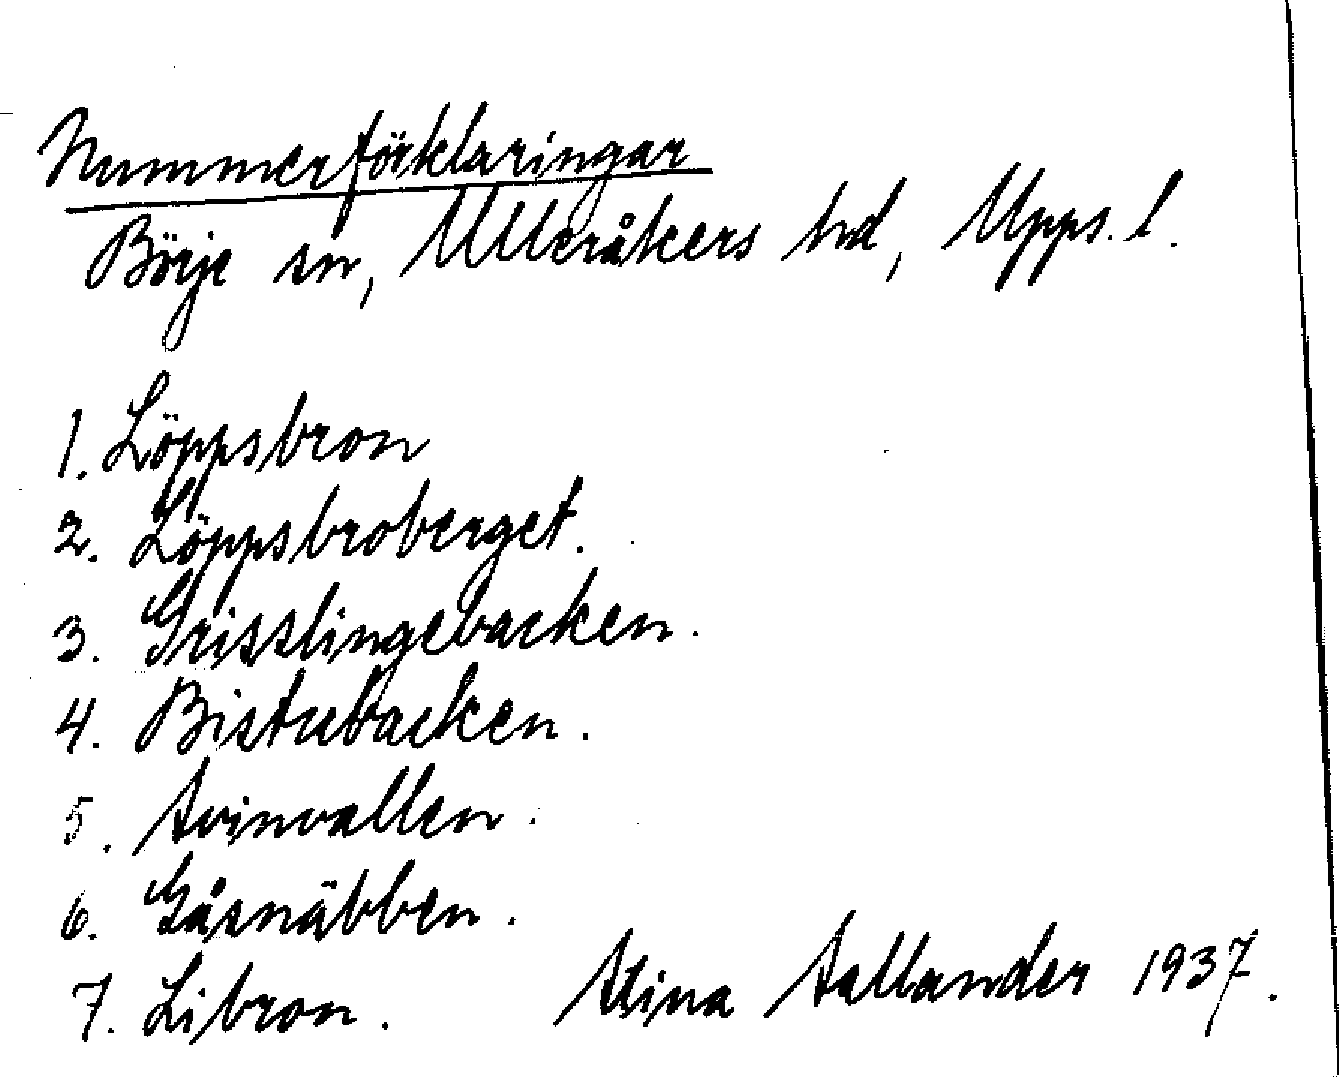 Nummerförklaringar
Börje sn, Ulleråkers hd, Upps. l.
1. Löppsbron
2. Löppsbroberget.
3. Grisslingebacken.
4. Bistubacken.
5. Svinvallen.
6. Gåsnäbben.
7. Libron. Stina Sallander 1937.